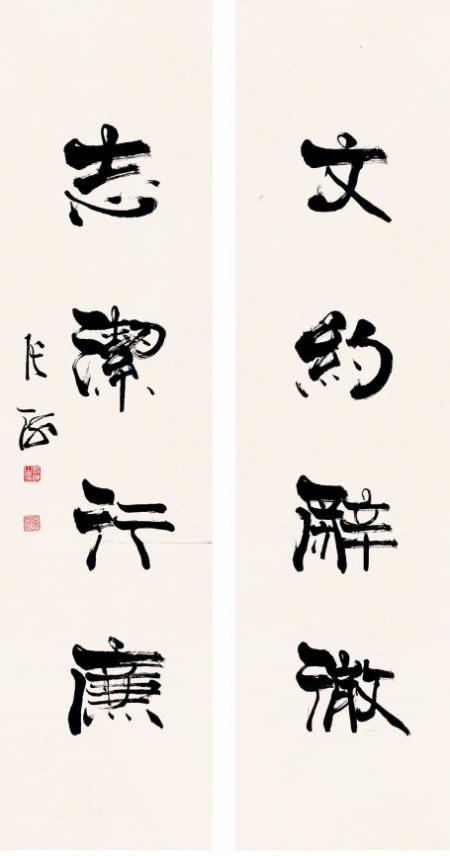 文約辭微
志潔行廉
張海